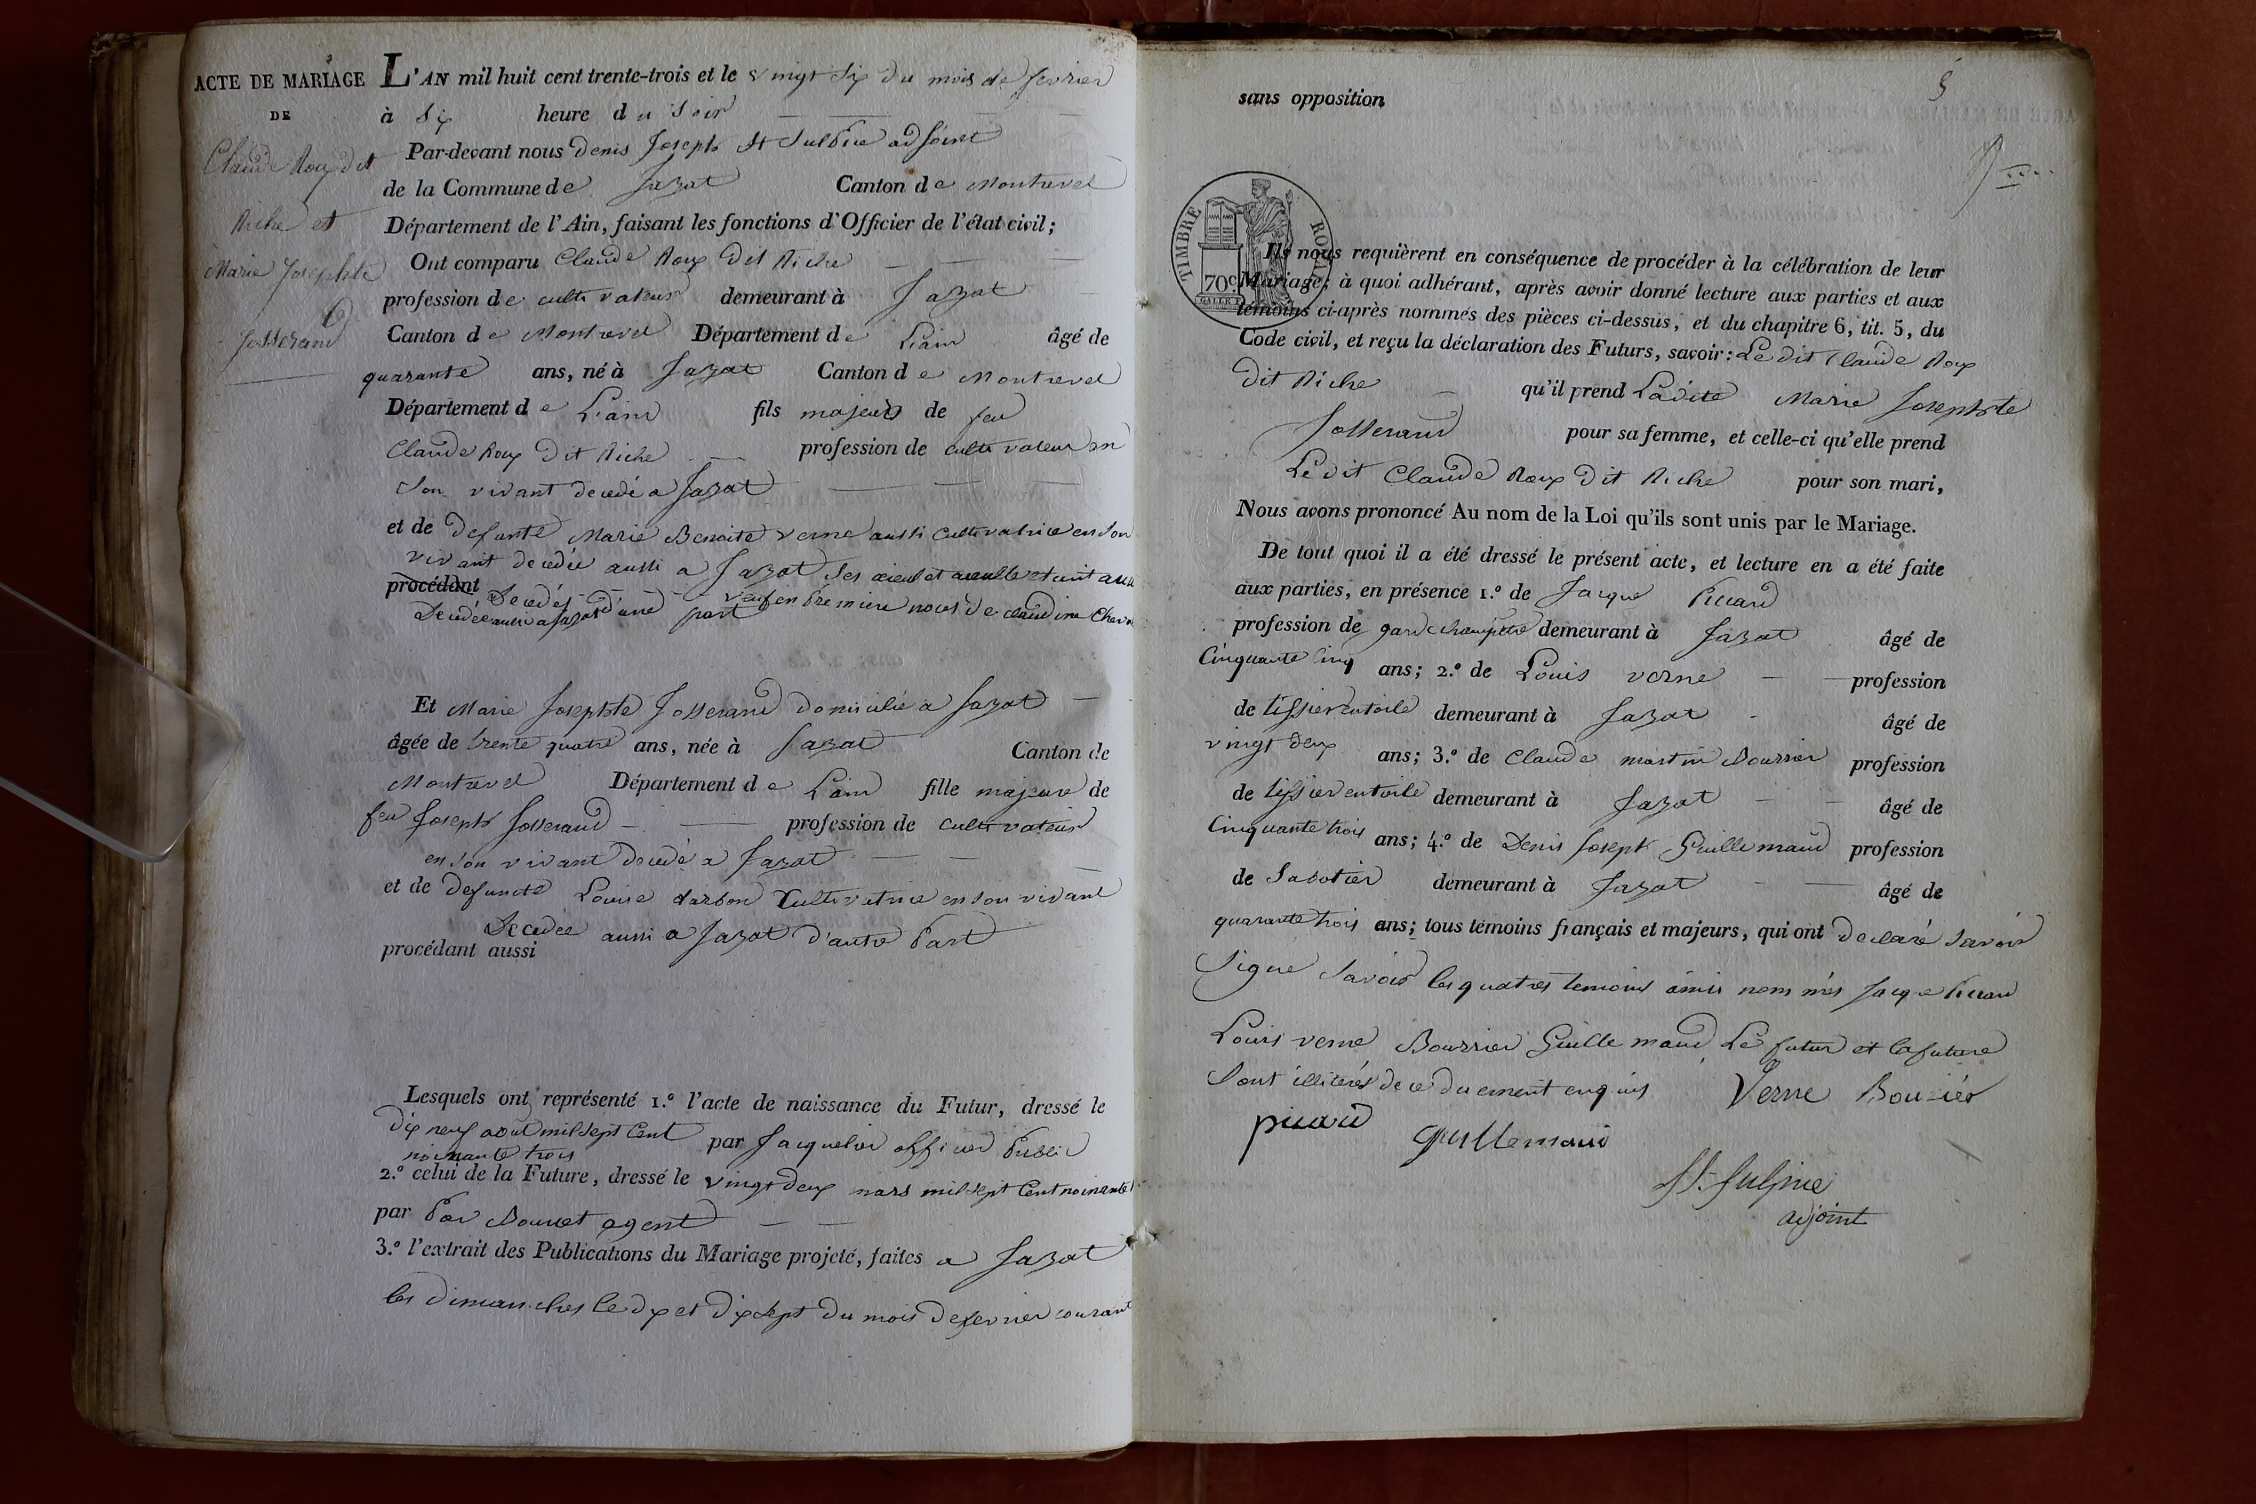 ACTE DE MARIAGE
DE
Claude Roux dit
Riche et
Marie Josephte
Josserand
L'AN mil huit cent trente-trois et le vingt Six du mois de fevrier
à Six heure du Soir
Par-devant nous denis Joseph St Sulpice adjoint
de la Commune de Jazat Canton de Montrevel
Département de l'Ain, faisant les fonctions d'Officier de l'état civil;
Ont comparu Claude Roux dit Riche
profession de cultivateur demeurant à Jazat
Canton de Montrevel Département de L'ain âgé de
quarante ans, né à Jazat Canton de Montrevel
Département de L'ain fils majeur de feu
Claude Roux dit Riche profession de cultivateur en
Son vivant decedé a Jazat
et de defunte Marie Benoite verne aussi cultivatrice en Son
vivant decedée aussi a Jazat Ses aieul et aieulle etant aussi
procédant Decedés d'une part veuf en Premiere noces de claudine
Decedée aussi a Jazat
Et Marie Josephte Josserand domicilié a Jazat
âgée de trente quatre ans, née à Jazat Canton de
Montrevel Département de L'ain fille majeure de
feu Joseph Josserand profession de cultivateur
en Son vivant decedé a Jazat
et de defuncte Louise darbon Cultivatrice en Son vivant
Decedée aussi a Jazat d'autre Part
procédant aussi
Lesquels ont représenté 1.º l'acte de naissance du Futur, dressé le
dix neuf aout mil Sept Cent par Jacquelin officier Public
noinante trois
2.º celui de la Future, dressé le vingt deux mars mil Sept Cent noinante
par Par Bouvet agent
3.º l'extrait des Publications du Mariage projeté, faites a Jazat
les dimanches le dix et dix Sept du mois de fevrier courant
5
sans opposition
TIMBRE ROYAL
70c.
Ils nous requièrent en conséquence de procéder à la célébration de leur
Mariage; à quoi adhérant, après avoir donné lecture aux parties et aux
témoins ci-après nommés des pièces ci-dessus, et du chapitre 6, tit. 5, du
Code civil, et reçu la déclaration des Futurs, savoir: Le dit Claude Roux
dit Riche qu'il prend La dite Marie Josephte
Josserand pour sa femme, et celle-ci qu'elle prend
Le dit Claude Roux dit Riche pour son mari,
Nous avons prononcé Au nom de la Loi qu'ils sont unis par le Mariage.
De tout quoi il a été dressé le présent acte, et lecture en a été faite
aux parties, en présence 1.º de Jacque Picard
profession de gardechampetre demeurant à Jazat âgé de
Cinquante Cinq ans; 2.º de Louis verne profession
de tissier en toile demeurant à Jazat âgé de
vingt deux ans; 3.º de Claude martin Bourrier profession
de tissier en toile demeurant à Jazat âgé de
Cinquante trois ans; 4.º de Denis Joseph Guillemaud profession
de Sabotier demeurant à Jazat âgé de
quarante trois ans; tous témoins français et majeurs, qui ont declaré Savoir
Signe Savoir les quatres temoins nom més Jacque Picard
Louis verne Bourrier Guillemaud Le futur et la future
Sont illiterés de ce duement enquis Verne Bouriér
picard guillemaud
St. Sulpice
adjoint